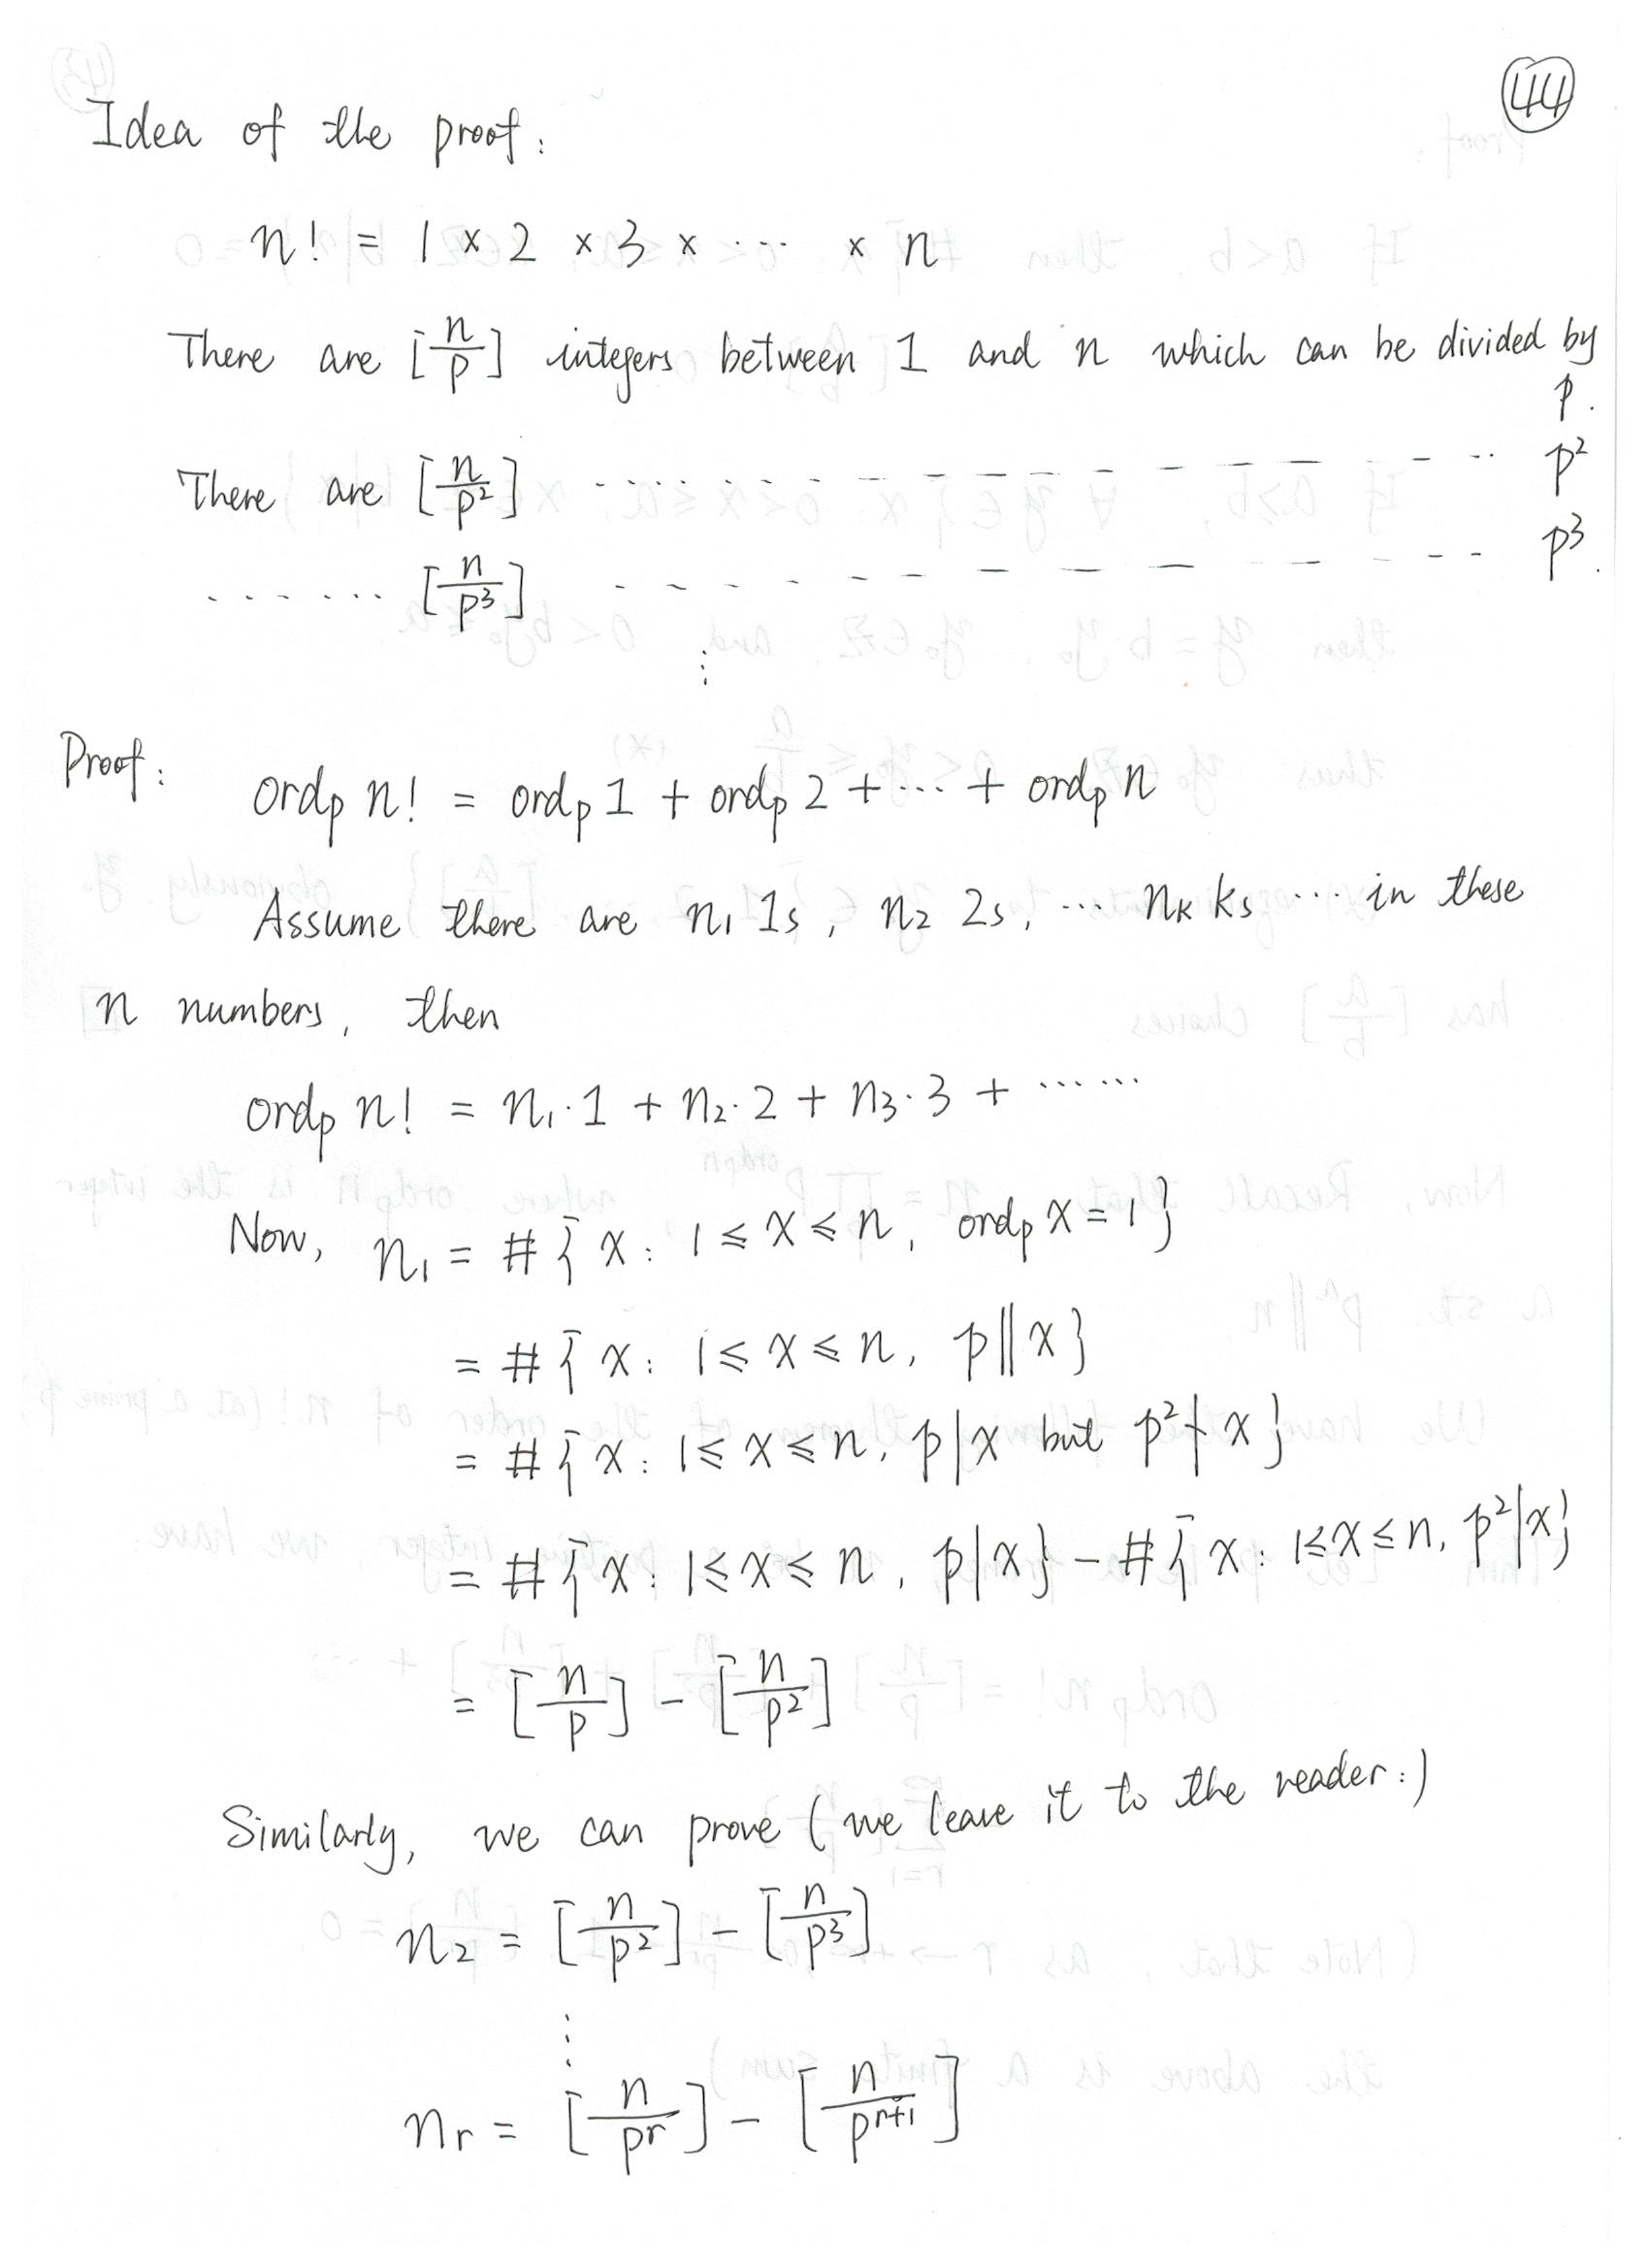 44
Idea of the proof:
n! = 1 × 2 × 3 × ⋯ × n
There are [n/p] integers between 1 and n which can be divided by
p.
There are [n/p²] ------------ p²
...... [n/p³] ------------ p³.
⋮
Proof: ordₚ n! = ordₚ 1 + ordₚ 2 + ⋯ + ordₚ n
Assume there are n₁ 1s, n₂ 2s, ⋯ nₖ ks ⋯ in these
n numbers, then
ordₚ n! = n₁·1 + n₂·2 + n₃·3 + ⋯⋯
Now, n₁ = #{x: 1 ⩽ x ⩽ n, ordₚ x = 1}
= #{x: 1 ⩽ x ⩽ n, p‖x}
= #{x: 1 ⩽ x ⩽ n, p|x but p²∤x}
= #{x: 1 ⩽ x ⩽ n, p|x} − #{x: 1 ⩽ x ⩽ n, p²|x}
= [n/p] − [n/p²]
Similarly, we can prove (we leave it to the reader:)
n₂ = [n/p²] − [n/p³]
⋮
nᵣ = [n/pʳ] − [n/pʳ⁺¹]